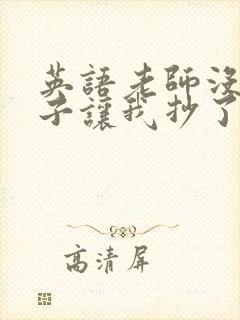 英語老師沒
子讓我抄了
高清屏